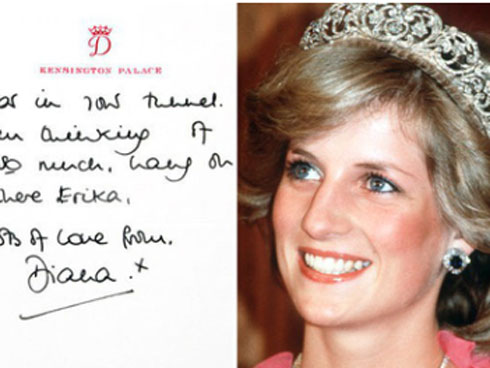 D
KENSINGTON PALACE
in your tunnel.
thinking of
much. hang on
there Erika.
of love from.
Diana. x